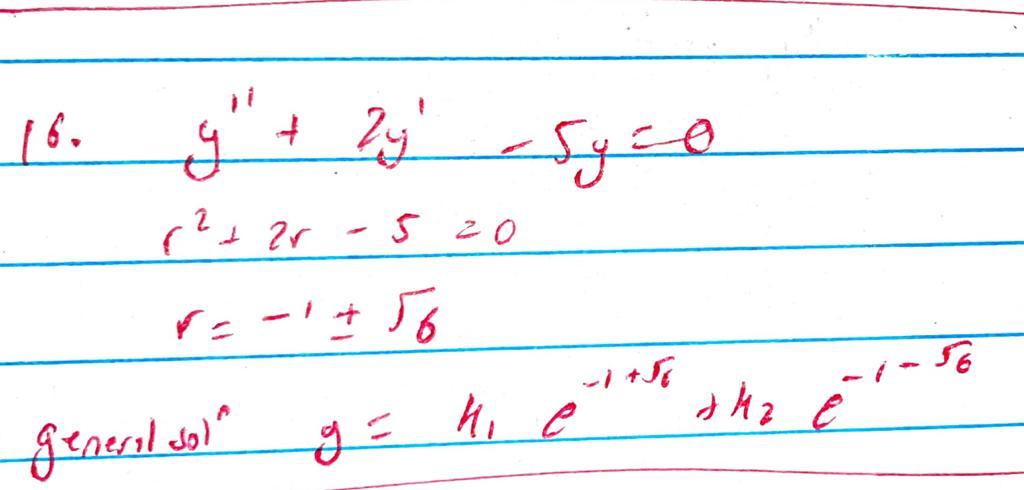 16. y'' + 2y' - 5y = 0
r² + 2r - 5 = 0
r = -1 ± √6
general solⁿ y = k₁ e^{-1+√6} + k₂ e^{-1-√6}